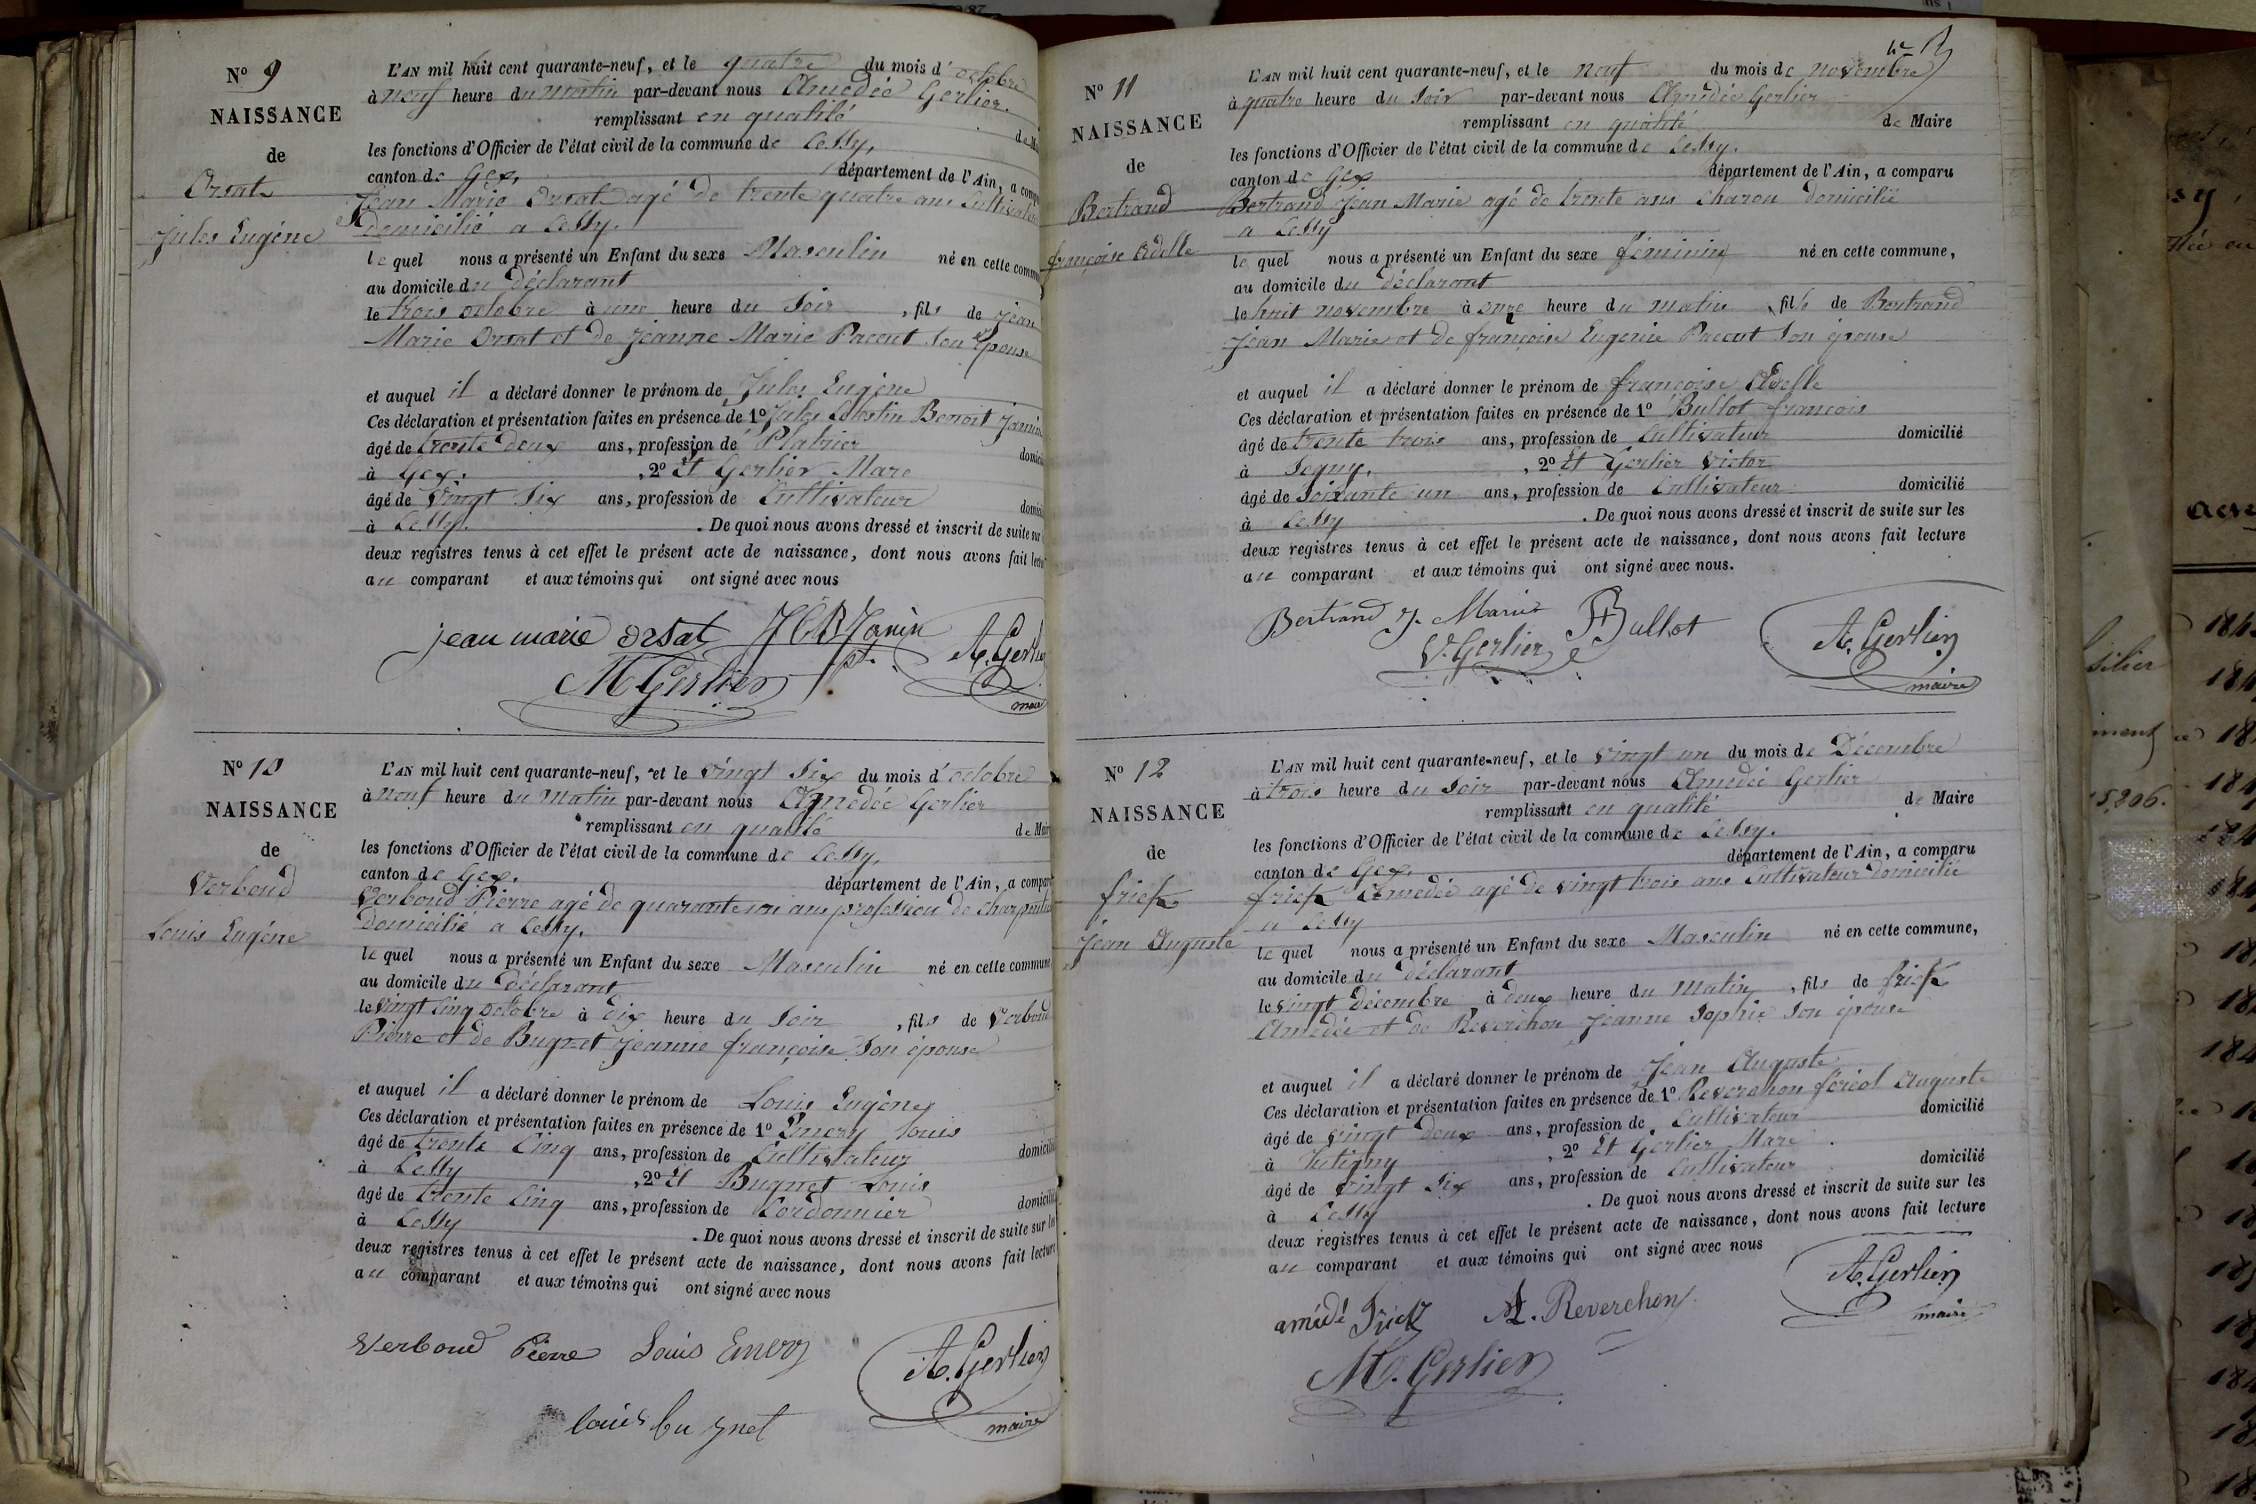 N° 9
NAISSANCE
de
Orsat
Jules Eugène
L'AN mil huit cent quarante-neuf, et le quatre du mois d'octobre
à neuf heure du matin par-devant nous Amedée Gerlier
remplissant en qualité de
les fonctions d'Officier de l'état civil de la commune de Cessy,
canton de Gex, département de l'Ain, a
Jean Marie Orsat agé de trente quatre ans Cultivateur
domicilié a Cessy.
le quel nous a présenté un Enfant du sexe Masculin né en cette
au domicile du déclarant
le trois octobre à une heure du Soir, fils de Jean
Marie Orsat et de Jeanne Marie Pacout Son épouse
et auquel il a déclaré donner le prénom de Jules Eugène
Ces déclaration et présentation faites en présence de 1° Jules Celestin Benoit Janin
âgé de trente deux ans, profession de Platrier
à Gex. , 2° Et Gerlier Marc
âgé de Vingt Six ans, profession de Cultivateur
à Cessy. . De quoi nous avons dressé et inscrit de suite sur
deux registres tenus à cet effet le présent acte de naissance, dont nous avons fait
au comparant et aux témoins qui ont signé avec nous
jean marie orsat JCB Janin
A. Gerlier
M Gerlier
maire
N° 10
NAISSANCE
de
Verboud
Louis Eugéne
L'AN mil huit cent quarante-neuf, et le vingt Six du mois d'octobre
à neuf heure du Matin par-devant nous Amedée Gerlier
remplissant en qualité de
les fonctions d'Officier de l'état civil de la commune de Cessy,
canton de Gex. département de l'Ain, a
Verboud Pierre agé de quarante ans profession de Charpentier
Domicilié a Cessy.
le quel nous a présenté un Enfant du sexe Masculin né en cette commune
au domicile du déclarant
le vingt Cinq octobre à dix heure du Soir, fils de Verboud
Pierre et de Bugnet Jeanne françoise Son épouse
et auquel il a déclaré donner le prénom de Louis Eugène
Ces déclaration et présentation faites en présence de 1° Emery Louis
âgé de trente Cinq ans, profession de Cultivateur
à Cessy , 2° Et Bugnet Louis
âgé de trente Cinq ans, profession de Cordonnier
à Cessy . De quoi nous avons dressé et inscrit de suite sur
deux registres tenus à cet effet le présent acte de naissance, dont nous avons fait lecture
au comparant et aux témoins qui ont signé avec nous
Verboud Pierre Louis Emery
A. Gerlier
louis bugnet
maire
N° 11
NAISSANCE
de
Bertrand
françoise Adelle
L'AN mil huit cent quarante-neuf, et le neuf du mois de novembre
à quatre heure du Soir par-devant nous Amédée Gerlier
remplissant en qualité de Maire
les fonctions d'Officier de l'état civil de la commune de Cessy.
canton de Gex département de l'Ain, a comparu
Bertrand Jean Marie agé de trente ans Charon domicilié
a Cessy
le quel nous a présenté un Enfant du sexe féminin né en cette commune,
au domicile du déclarant
le huit novembre à onze heure du matin, fille de Bertrand
Jean Marie et de françoise Eugenie Pacout Son épouse
et auquel il a déclaré donner le prénom de françoise Adelle
Ces déclaration et présentation faites en présence de 1° Bullot françois
âgé de trente trois ans, profession de Cultivateur domicilié
à Segny. , 2° Et Gerlier Victor
âgé de Soixante un ans, profession de Cultivateur domicilié
à Cessy . De quoi nous avons dressé et inscrit de suite sur les
deux registres tenus à cet effet le présent acte de naissance, dont nous avons fait lecture
au comparant et aux témoins qui ont signé avec nous.
Bertrand J. Marie Bullot
V. Gerlier A. Gerlier
maire
N° 12
NAISSANCE
de
frick
Jean Auguste
L'AN mil huit cent quarante-neuf, et le vingt un du mois de Décembre
à trois heure du Soir par-devant nous Amedée Gerlier
remplissant en qualité de Maire
les fonctions d'Officier de l'état civil de la commune de Cessy.
canton de Gex. département de l'Ain, a comparu
frick Amedée agé de vingt trois ans Cultivateur domicilié
a Cessy
le quel nous a présenté un Enfant du sexe Masculin né en cette commune,
au domicile du déclarant
le vingt Décembre à deux heure du Matin, fils de frick
Amedée et de Reverchon Jeanne Sophie Son épouse
et auquel il a déclaré donner le prénom de Jean Auguste
Ces déclaration et présentation faites en présence de 1° Reverchon féréol Auguste
âgé de vingt deux ans, profession de Cultivateur domicilié
à Vutigny , 2° Et Gerlier Marc
âgé de vingt Six ans, profession de Cultivateur domicilié
à Cessy . De quoi nous avons dressé et inscrit de suite sur les
deux registres tenus à cet effet le présent acte de naissance, dont nous avons fait lecture
au comparant et aux témoins qui ont signé avec nous
A. Gerlier
maire
amédé Frick A. Reverchon
M. Gerlier